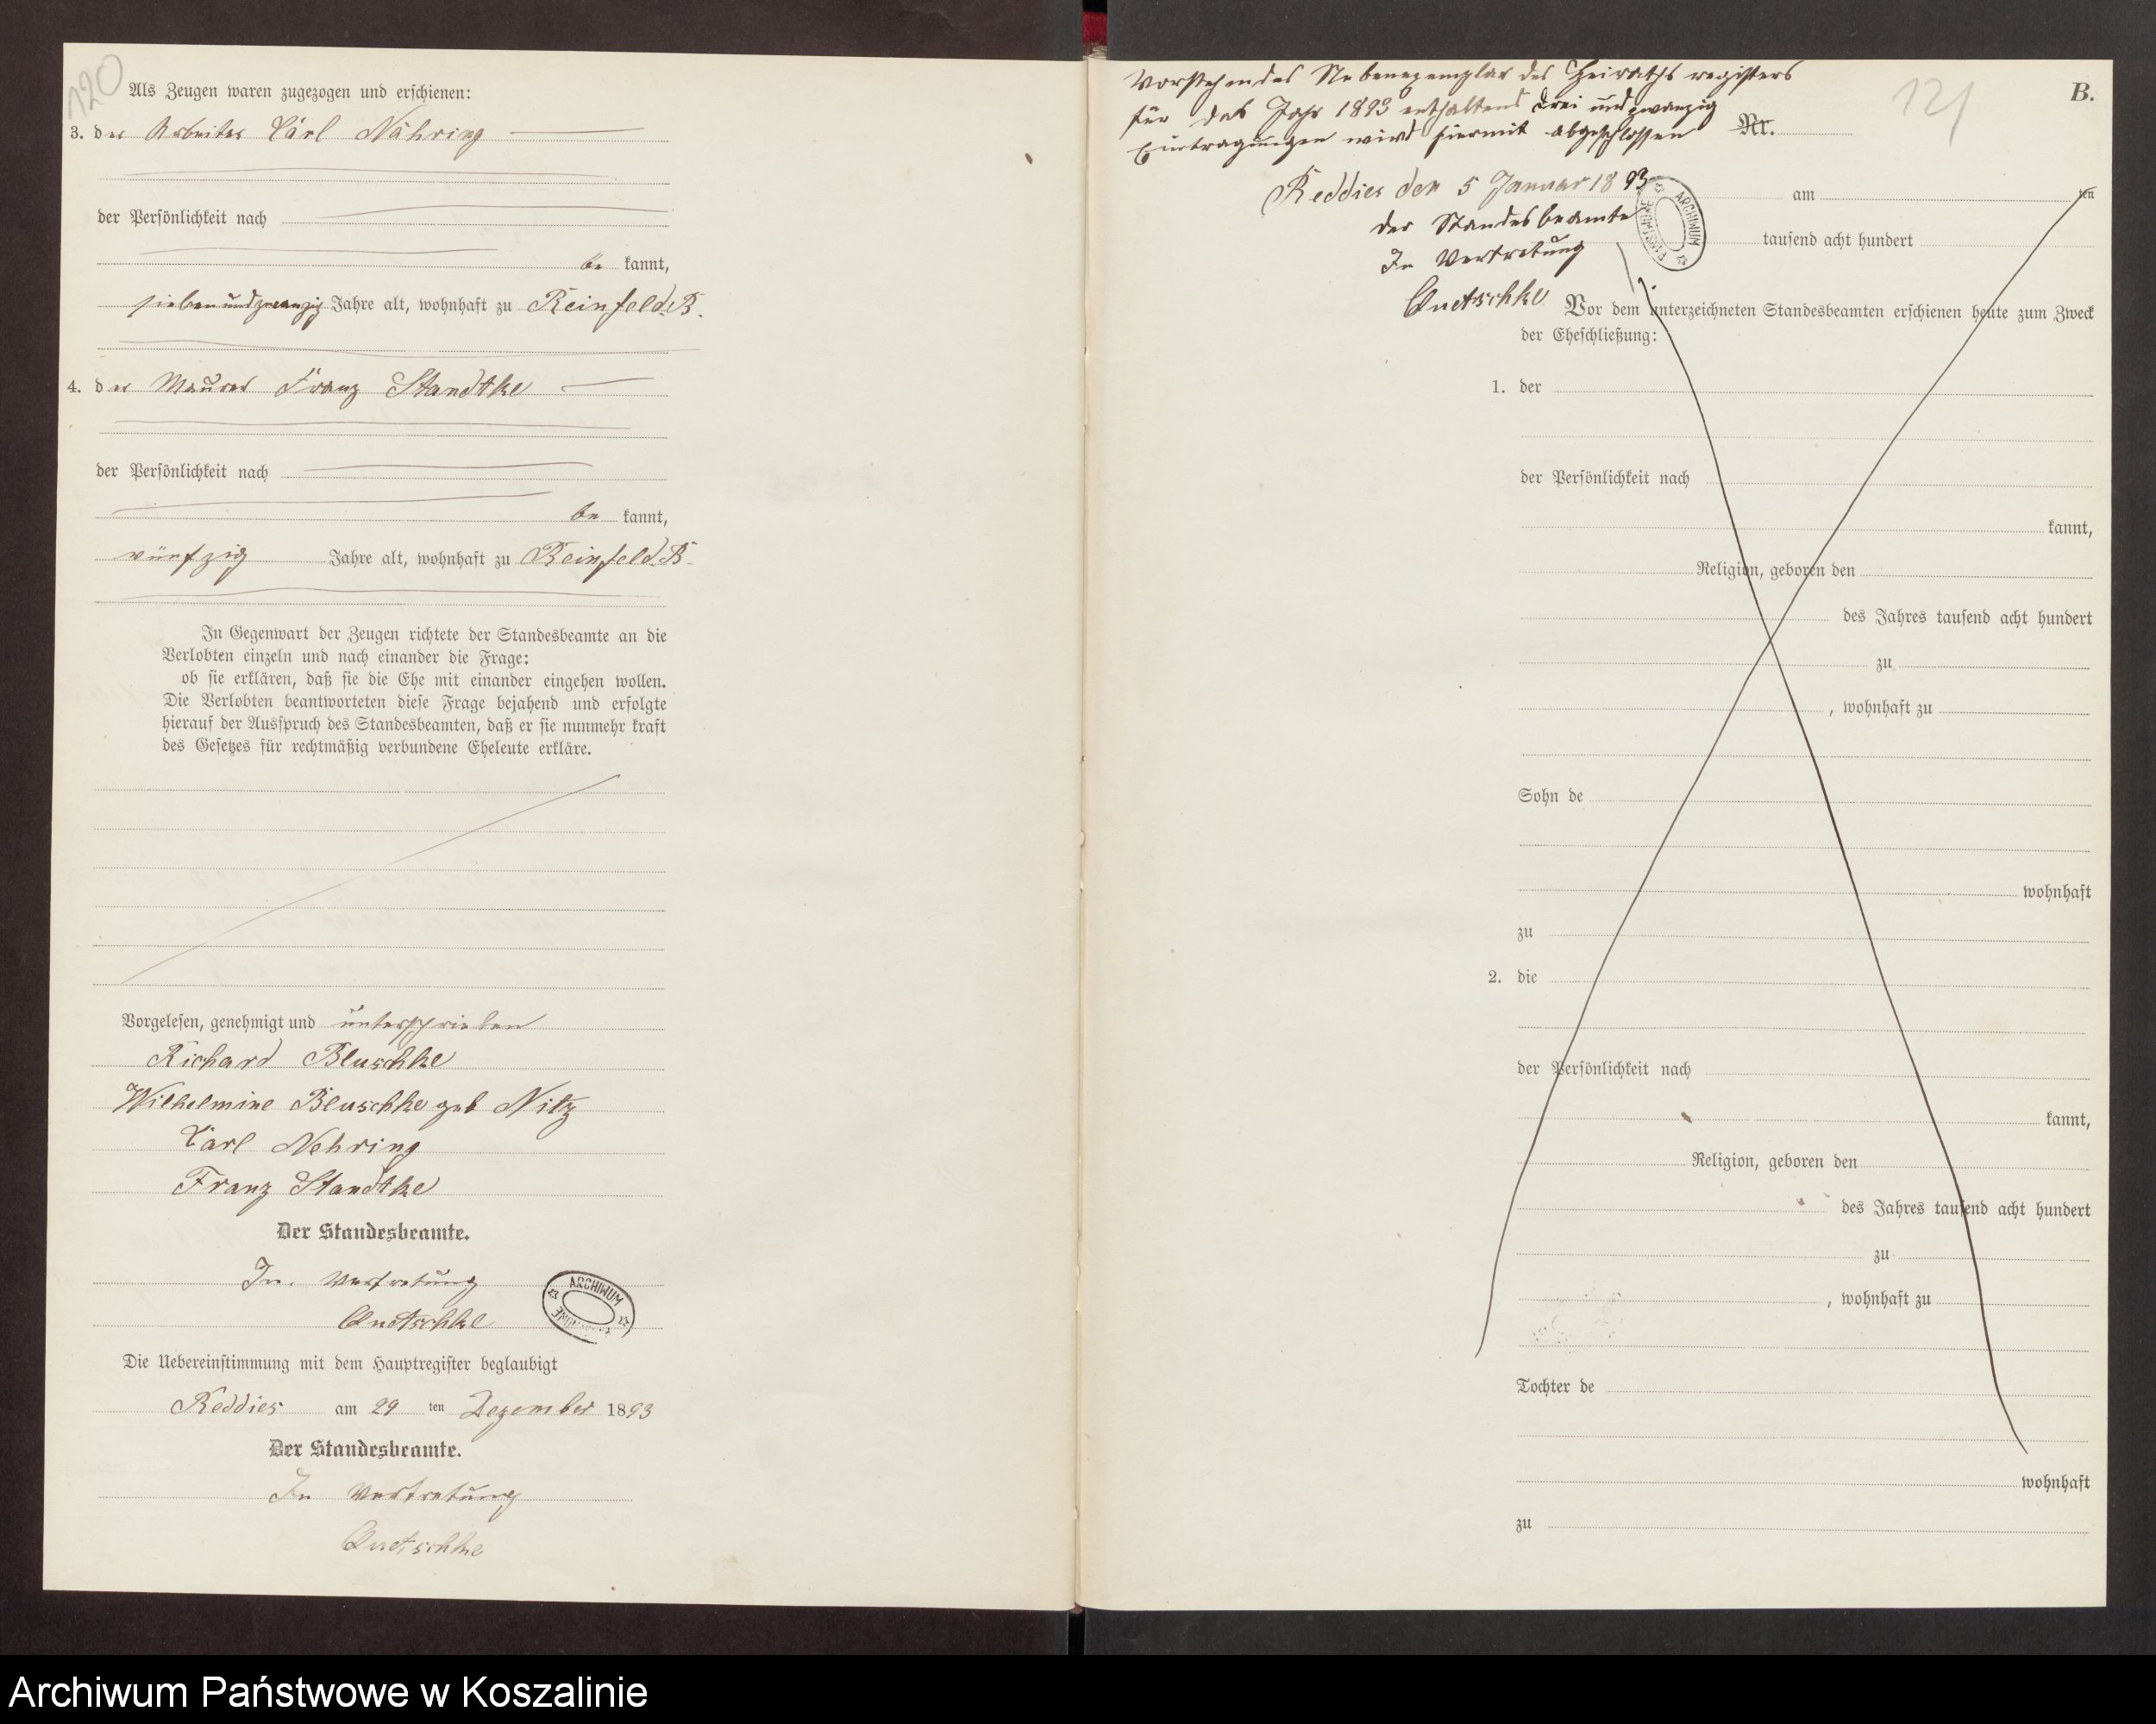 120
Als Zeugen waren zugezogen und erschienen:
3. der Arbeiter Carl Nähring
der Persönlichkeit nach
be kannt,
siebenundzwanzig Jahre alt, wohnhaft zu Reinfeld B.
4. der Maurer Franz Standtke
der Persönlichkeit nach
be kannt,
vünfzig Jahre alt, wohnhaft zu Reinfeld B
In Gegenwart der Zeugen richtete der Standesbeamte an die
Verlobten einzeln und nach einander die Frage:
ob sie erklären, daß sie die Ehe mit einander eingehen wollen.
Die Verlobten beantworteten diese Frage bejahend und erfolgte
hierauf der Ausspruch des Standesbeamten, daß er sie nunmehr kraft
des Gesetzes für rechtmäßig verbundene Eheleute erkläre.
Vorgelesen, genehmigt und unterschrieben
Richard Bluschke
Wilhelmine Bluschke geb Nitz
Carl Nehring
Franz Standtke
Der Standesbeamte.
In Vertretung
Quetschke
ARCHIWUM
Die Uebereinstimmung mit dem Hauptregister beglaubigt
Reddies am 29 ten Dezember 1893
Der Standesbeamte.
In Vertretung
Quetschke
Vorstehendes Nebenexemplar des Heiraths registers
für das Jahr 1893 enthaltend drei und zwanzig
Eintragungen wird hiermit abgeschlossen
Reddies den 5 Januar 1893
der Standesbeamte
In Vertretung
Quetschke
121
B.
Nr.
ARCHIWUM PAŃSTWOWE
am ten
tausend acht hundert
Vor dem unterzeichneten Standesbeamten erschienen heute zum Zweck
der Eheschließung:
1. der
der Persönlichkeit nach
kannt,
Religion, geboren den
des Jahres tausend acht hundert
zu
, wohnhaft zu
Sohn de
wohnhaft
zu
2. die
der Persönlichkeit nach
kannt,
Religion, geboren den
des Jahres tausend acht hundert
zu
, wohnhaft zu
Tochter de
wohnhaft
zu
Archiwum Państwowe w Koszalinie